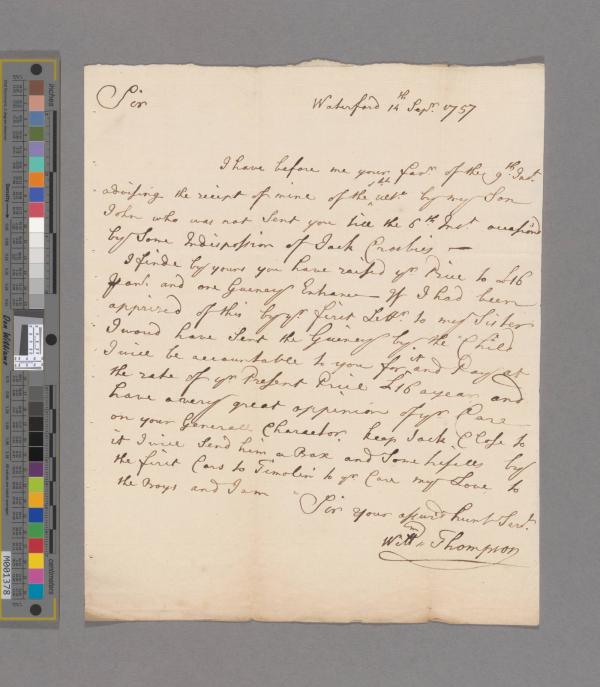 Sir
Waterford 14th Sepr. 1757
I have before me your favr. of the 9th Inst.
advising the receipt of mine of the 1st ulto. by my Son
John who was not Sent you till the 6th Inst. occasiond
by Some Indispossion of Jack Crosbies —
I finde by yours you have raised yr Price to £16
P an. and one Guiney Entrance — If I had been
apprized of this by yr. first Lettr. to my Sister
I woud have Sent the Guiney by the Child
I will be accountable to you for it and Pay at
the rate of yr Present Price £16 a year and
have a very great oppinion of yr Care
on your Generall Charactor, keep Jack Close to
it I will Send him a Box and Some by
the first Cars to Timolin to yr Care my Love to
the Boys and I am
Sir your assurd humt Servt.
Willm Thompson
inches
centimetres
Don Williams
M001378